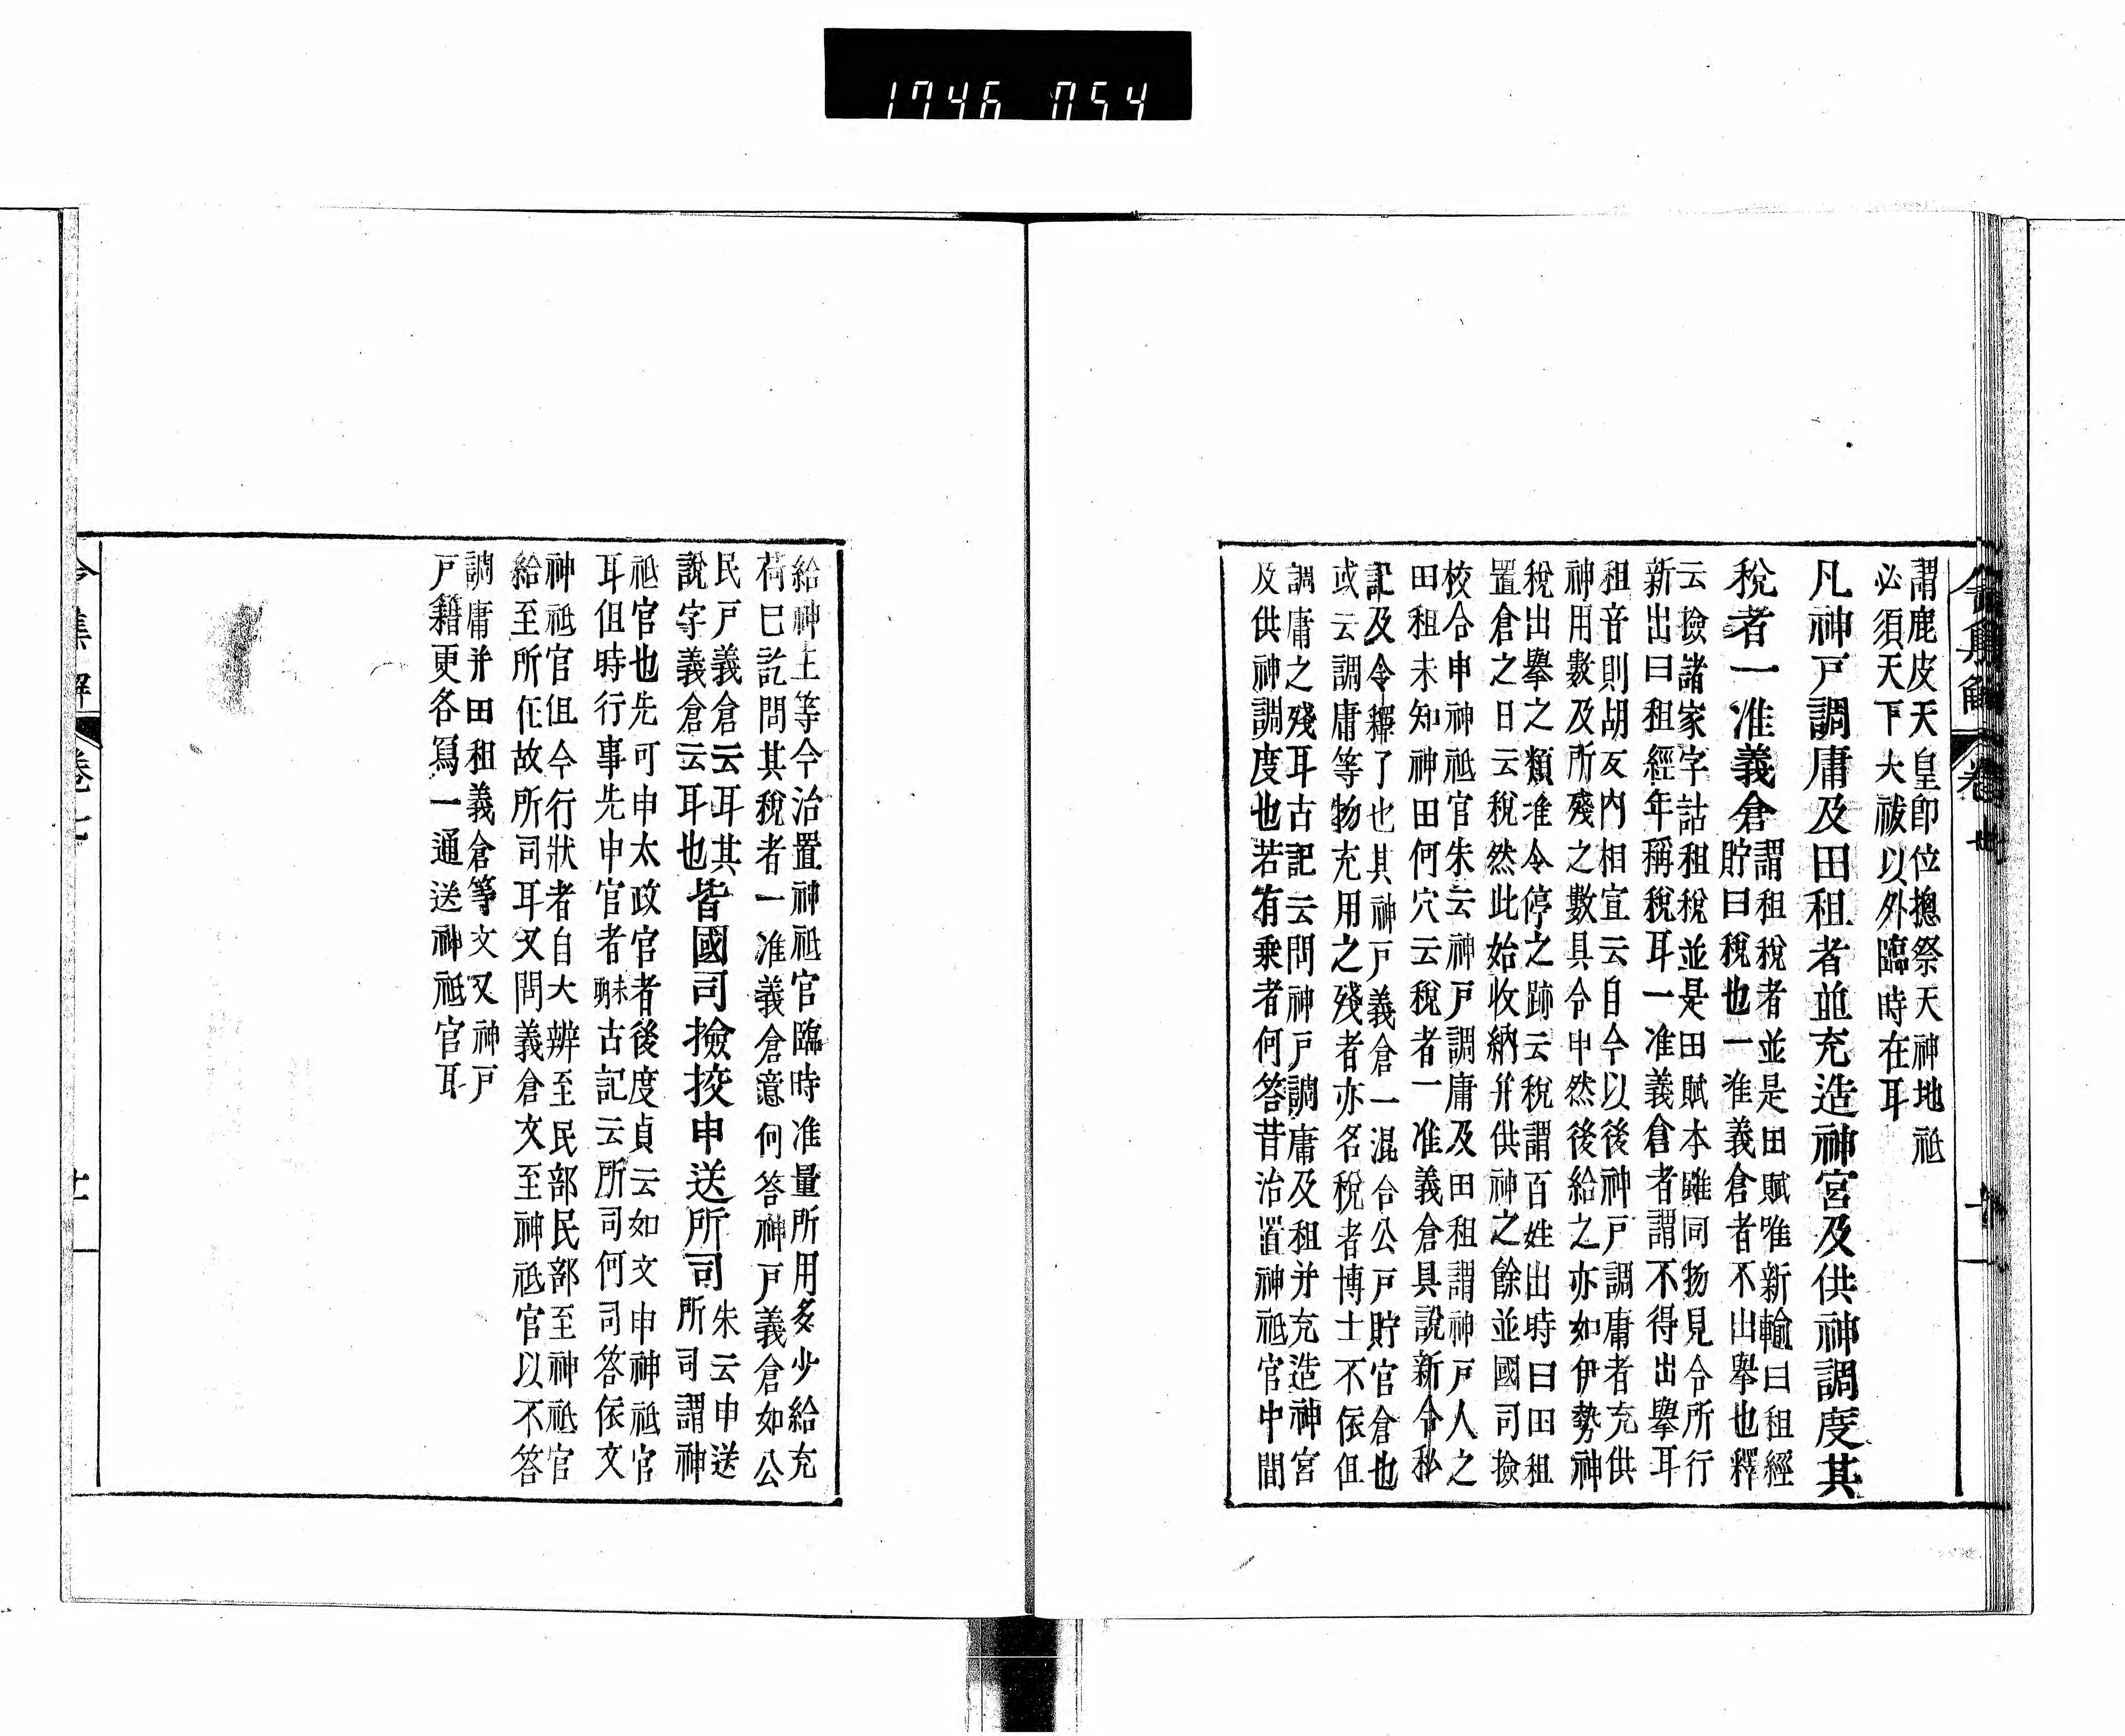 1746 054
令集解 卷七 十
謂鹿皮天皇即位惣祭天神地祇
必須天下大祓以外臨時在耳
凡神戸調庸及田租者並充造神宮及供神調度其
稅者一准義倉
謂租稅者並是田賦唯新輸曰租經
貯曰稅也一准義倉者不出擧也釋
云撿諸家字詁租稅並是田賦本雖同物見令所行
新出曰租經年稱稅耳一准義倉者謂不得出擧耳
租音則胡反內相宣云自今以後神戸調庸者充供
神用數及所殘之數具令申然後給之亦如伊勢神
稅出擧之類准令停之跡云稅謂百姓出時曰田租
置倉之日云稅然此始收納幷供神之餘並國司撿
校合申神祇官朱云神戸調庸及田租謂神戸人之
田租未知神田何穴云稅者一准義倉具說新令私
記及令釋了也其神戸義倉一混合公戸貯官倉也
或云調庸等物充用之殘者亦名稅者博士不依但
調庸之殘耳古記云問神戸調庸及租并充造神宮
及供神調度也若有乗者何答昔治置神祇官中間
給神主等今治置神祇官臨時准量所用多少給充
荷已訖問其稅者一准義倉意何答神戸義倉如公
民戸義倉云耳其
說字義倉云耳也
皆國司撿挍申送所司
朱云申送
所司謂神
祇官也先可申太政官者後度貞云如文申神祇官
耳但時行事先申官者古記云所司何司答依文
神祇官但今行狀者自大辨至民部民部至神祇官
給至所任故所司耳又問義倉文至神祇官以不答
調庸并田租義倉等文又神戸
戸籍更各寫一通送神祇官耳
令集解 卷七 十一